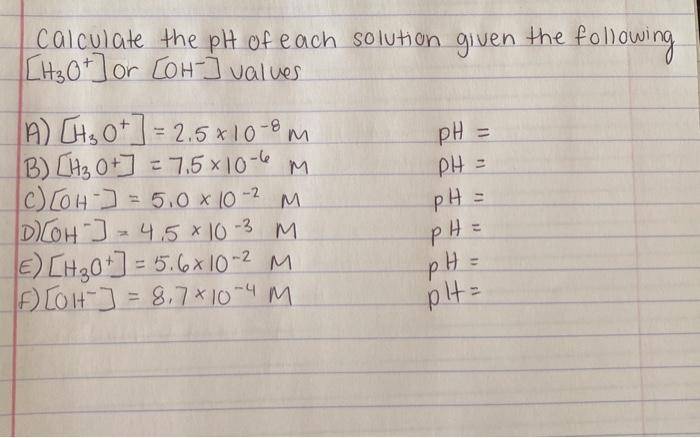 Calculate the pH of each solution given the following
[H₃O⁺] or [OH⁻] values
A) [H₃O⁺] = 2.5 × 10⁻⁸ M pH =
B) [H₃O+] = 7.5 × 10⁻⁶ M pH =
C) [OH⁻] = 5.0 × 10⁻² M pH =
D) [OH⁻] = 4.5 × 10⁻³ M pH =
E) [H₃O⁺] = 5.6 × 10⁻² M pH =
F) [OH⁻] = 8.7 × 10⁻⁴ M pH =